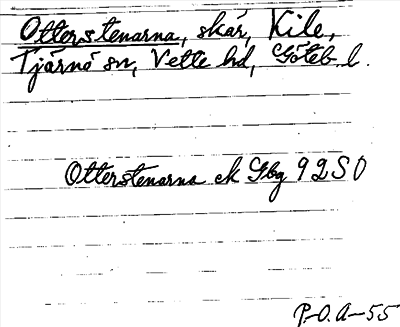 Otterstenarna, skär, Kile,
Tjärnö sn, Vette hd, Göteb. l.
Otterstenarna ek Gbg 92 SO
P.-O. A-55